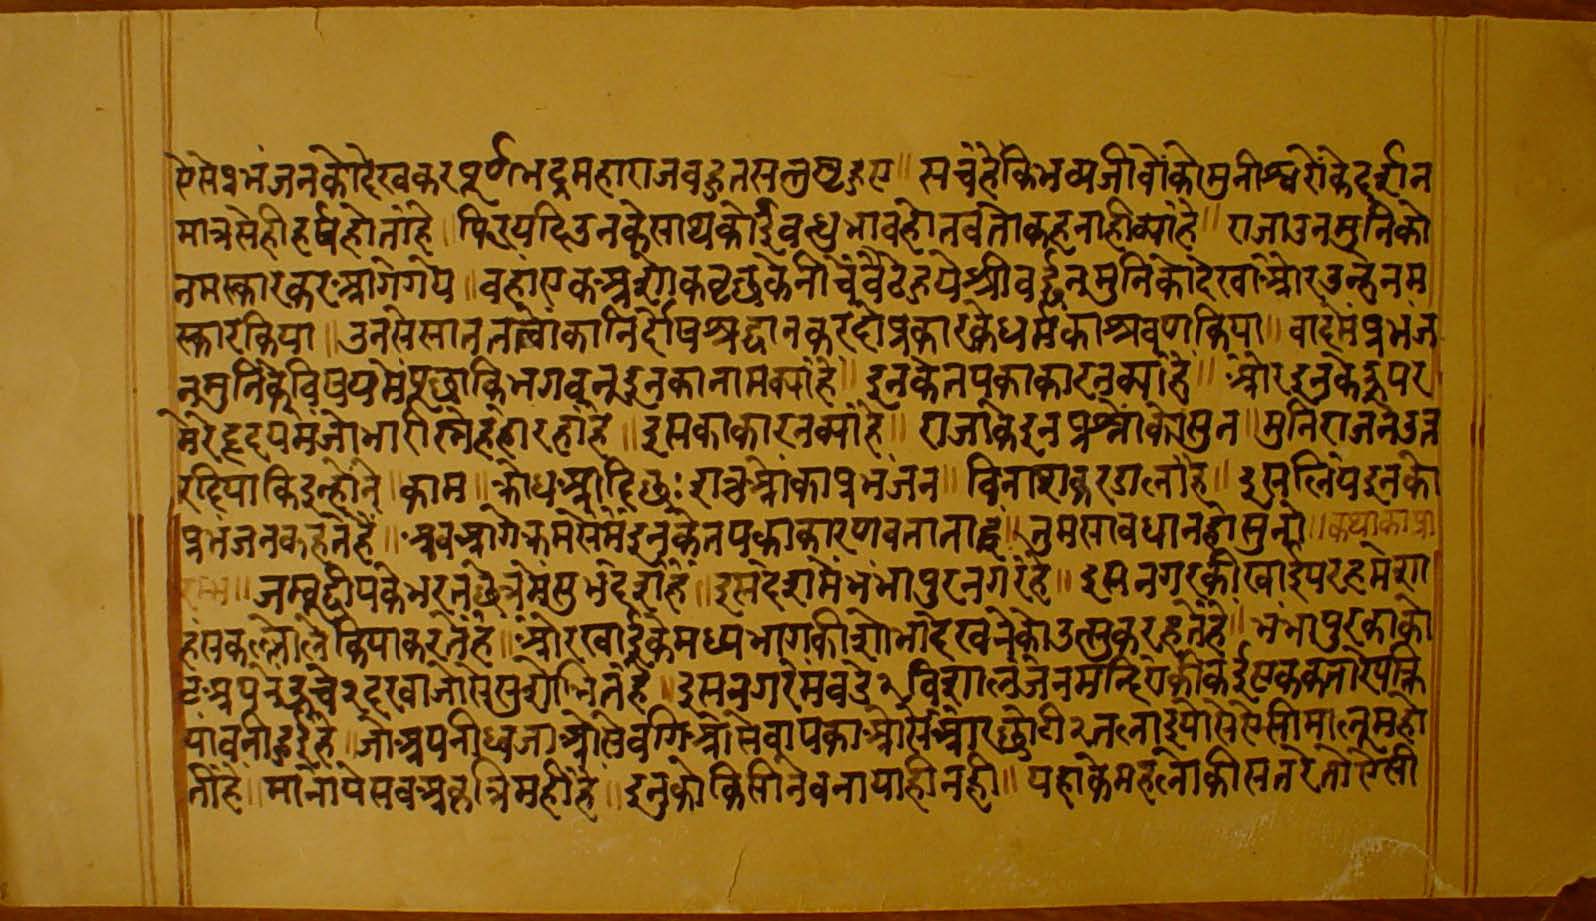 ऐसे प्रभंजनको देखकर पूर्णभद्र महाराज बहुत सन्तुष्ट हुए ॥ सच है कि भव्य जीवों को मुनीश्वरों के दर्शन
मात्र से ही हर्ष होता है ॥ फिर यदि उनके साथ कोई बन्धुभाव हो तब तो कहना ही क्या है ॥ राजा उन मुनि को
नमस्कार कर आगे गये ॥ वहां एक अशोक वृक्ष के नीचे बैठे हुये श्रीवर्द्धन मुनि को देखा और उन्हे नम
स्कार किया ॥ उनसे सात तत्वों का निर्दोष श्रद्धान कर दो प्रकार के धर्म का श्रवण किया ॥ बाद में प्रभंज
न मुनि के विषय में पूछा कि भगवन् इनका नाम क्या है ॥ इनके तप का कारन क्या है ॥ और इनके ऊपर
मेरे हृदय में जो भारी स्नेह हो रहा है ॥ इसका कारन क्या है ॥ राजा के इन प्रश्नों को सुन ॥ मुनिराज ने उत्त
र दिया कि इन्होंने ॥ काम ॥ क्रोध आदि छः शत्रुओं का प्रभंजन ॥ विनाश कर डाला है ॥ इसलिये इनको
प्रभंजन कहते हैं ॥ अब आगे क्रम से मैं इनके तप का कारण बताता हूं ॥ तुम सावधान हो सुनो ॥ कथा का प्रा
रम्भ ॥ जम्बूद्वीप के भरतक्षेत्र में सुभ देश है ॥ इस देश में भंभापुर नगर है ॥ इस नगर की खाई पर हमेशा
हंस कल्लोलें किया करते है ॥ और खाई के मध्य भाग की शोभा देखने को उत्सुक रहते है ॥ भंभापुर का को
ट अपने ऊंचे २ दरवाजों से सुशोभित है ॥ इस नगर में बडे २ विशाल जैन मन्दिरों की कई एक कतारे पंक्ति
यां बनी हुई है ॥ जो अपनी ध्वजाओं से बगीचों से वापिकाओं से और छोटी २ तलाइयों से ऐसी मालूम हो
ती हैं ॥ मानो ये सब अकृत्रिम ही है ॥ इनको किसीने बनाया ही नही ॥ यहा के महलों की सतरे तो ऐसी